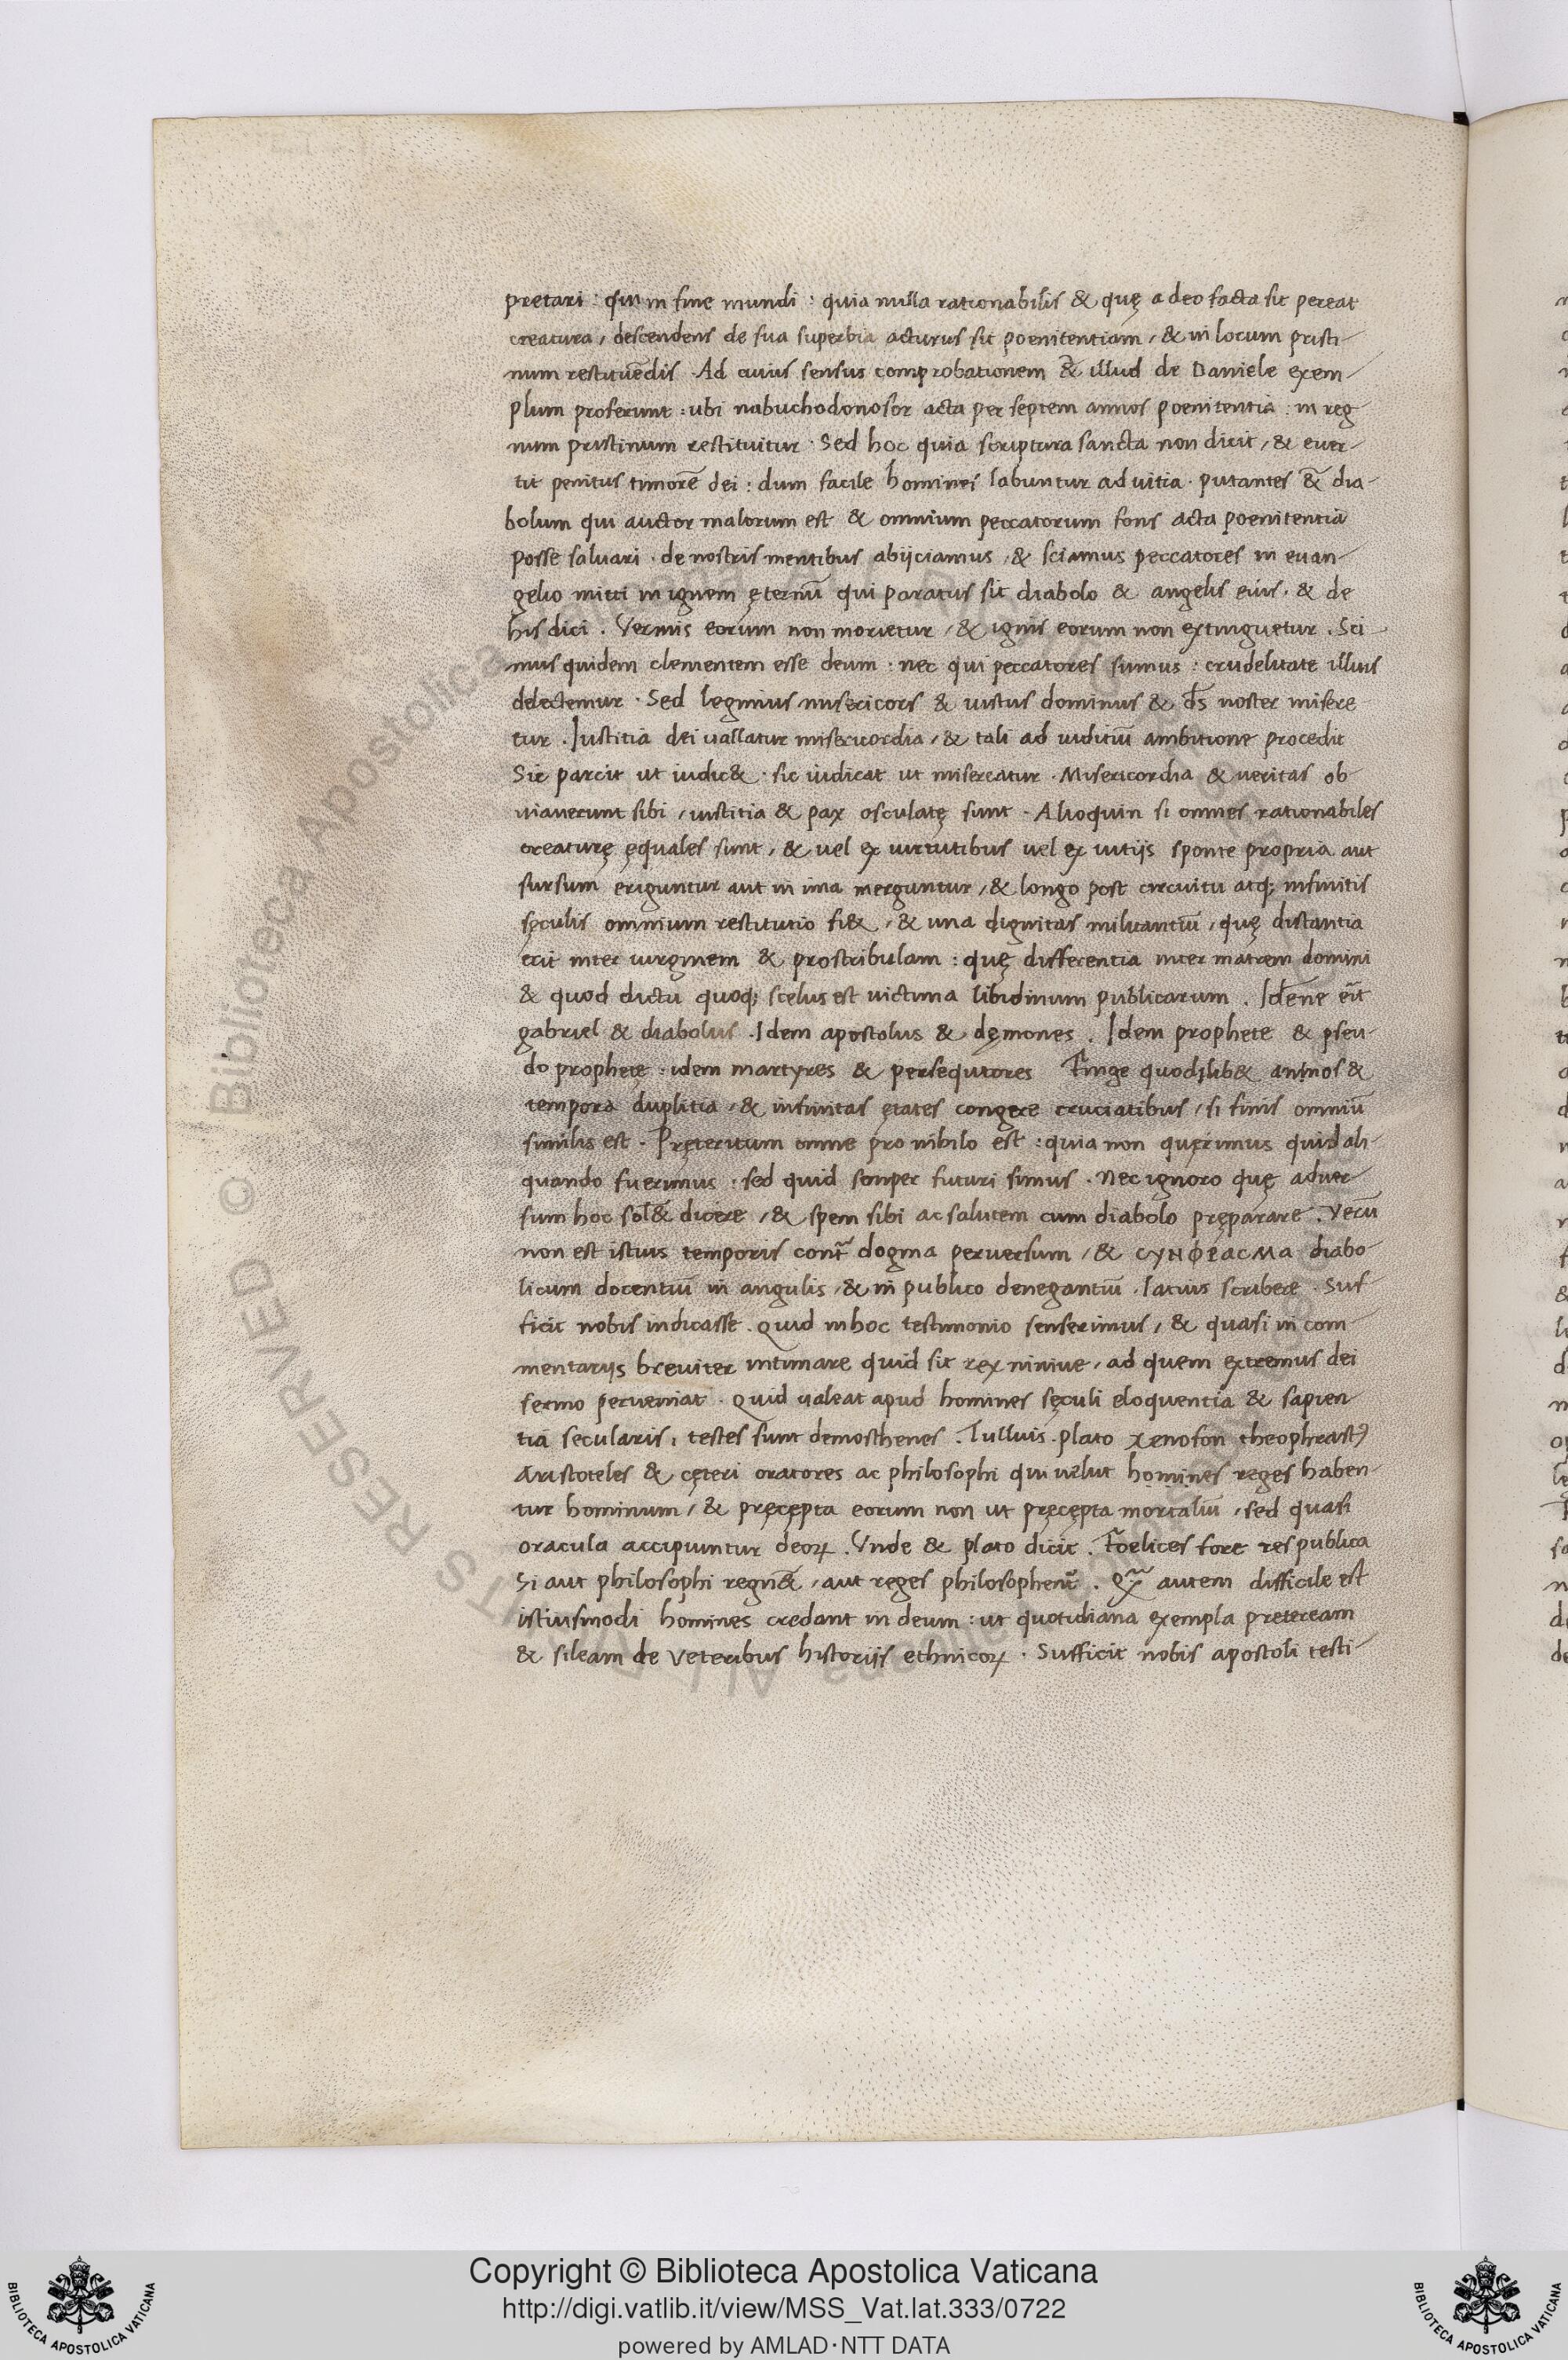 pretari : qui in fine mundi : quia nulla rationabilis & quę a deo facta sit pereat
creatura, descendens de sua superbia acturus sit poenitentiam, & in locum pristi-
num restituēdis. Ad cuius sensus comprobationem &̄ illud de Daniele exem-
plum proferunt : ubi nabuchodonosor acta per septem annos poenitentia : in reg
num pristinum restituitur. Sed hoc quia scriptura sancta non dicit, & ever-
tit penitus timorē dei : dum facile homines labuntur ad vitia. putantes &̄ dia-
bolum qui auctor malorum est & omnium peccatorum fons acta poenitentia
posse salvari. de nostris mentibus abijciamus, & sciamus peccatores in evan-
gelio mitti in ignem ęternū qui paratus sit diabolo & angelis eius. & de
his dici. Vermis eorum non morietur, & ignis eorum non extinguetur. Sci
mus quidem clementem esse deum : nec qui peccatores sumus : crudelitate illius
delectemur. Sed legimus misericors & iustus dominus & ds̄ noster misere
tur. Iustitia dei vallatur misericordia, & tali ad iuditiū ambitione procedit
Sic parcit ut iudic&. sic iudicat ut misereatur. Misericordia & veritas ob
viaverunt sibi, iustitia & pax osculatę sunt. Alioquin si omnes rationabiles
creaturę ęquales sunt, & vel ex virtutibus vel ex vitijs sponte propria aut
sursum eriguntur aut in ima merguntur, & longo post circuitu atq; infinitis
sęculis omnium restitutio fi&, & una dignitas militantiū, quę distantia
erit inter virginem & prostribulam : quę differentia inter matrem domini
& quod dictu quoq; scelus est victima libidinum publicarum. Idēne erit
gabriel & diabolus. Idem apostolus & dęmones. Idem prophete & pseu-
do prophetę. idem martyres & persequtores Finge quodlib& annos &
tempora duplitia, & infinitas ętates congere cruciatibus, si finis omniū
similis est. Pręteritum omne pro nihilo est : quia non quęrimus quid ali-
quando fuerimus : sed quid semper futuri simus. Nec ignoro quę adver
sum hoc sol&̄ dicere, & spem sibi ac salutem cum diabolo pręparare. Verū
non est istius temporis cont̄ dogma perversum, & CYNΦΡACMA diabo
licum docentiū in angulis, & in publico denegantiū. latius scribere. Suf
ficit nobis indicasse. Quid in hoc testimonio senserimus, & quasi in com-
mentarijs breviter intimare quid sit rex ninive, ad quem extremus dei
sermo perveniat. Quid valeat apud homines sęculi eloquentia & sapien
tia secularis, testes sunt demosthenes. Tullius. plato xenofon theophrastꝰ
Aristoteles & cęteri oratores ac philosophi qui velut homines reges haben-
tur hominum, & pręcępta eorum non ut pręcępta mortaliū, sed quasi
oracula accipiuntur deoꝝ. Vnde & plato dicit. Foelices fore res publica
Si aut philosophi regn&̄, aut reges philosophent̄. Qꝫ autem difficile est
istiusmodi homines credant in deum : ut quotidiana exempla preteream
& sileam de veteribus historijs ethnicoꝝ. Sufficit nobis apostoli testi-
Copyright © Biblioteca Apostolica Vaticana
http://digi.vatlib.it/view/MSS_Vat.lat.333/0722
powered by AMLAD·NTT DATA